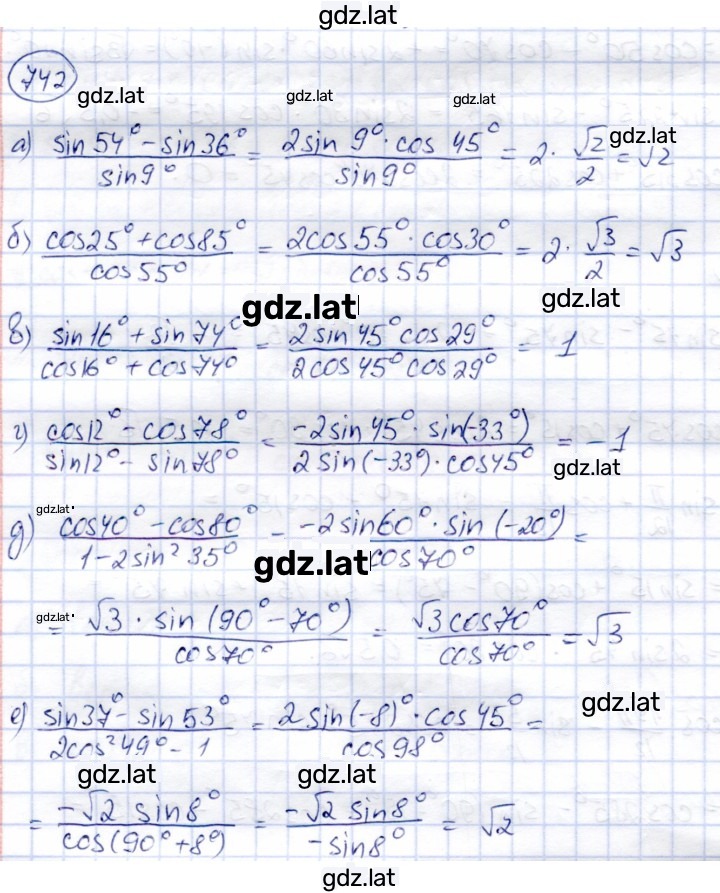 gdz.lat
742
gdz.lat gdz.lat gdz.lat
а) (sin54° - sin36°)/(sin9°) = (2sin 9° · cos 45°)/(sin9°) = 2 · √2/2 = √2 gdz.lat
б) (cos25° + cos85°)/(cos55°) = (2cos55° · cos30°)/(cos55°) = 2 · √3/2 = √3
gdz.lat gdz.lat
в) (sin16° + sin74°)/(cos16° + cos74°) = (2sin45° cos29°)/(2cos45° cos29°) = 1
г) (cos12° - cos78°)/(sin12° - sin78°) = (-2sin45° · sin(-33°))/(2sin(-33°) · cos45°) = -1
gdz.lat
gdz.lat
д) (cos40° - cos80°)/(1 - 2sin²35°) = (-2sin60° · sin(-20°))/(cos70°) =
gdz.lat
gdz.lat
= (√3 · sin(90° - 70°))/(cos70°) = (√3cos70°)/(cos70°) = √3
е) (sin37° - sin53°)/(2cos²49° - 1) = (2sin(-8)° · cos45°)/(cos98°) =
gdz.lat
gdz.lat gdz.lat
= (-√2 sin8°)/(cos(90° + 8°)) = (-√2 sin8°)/(-sin8°) = √2
gdz.lat